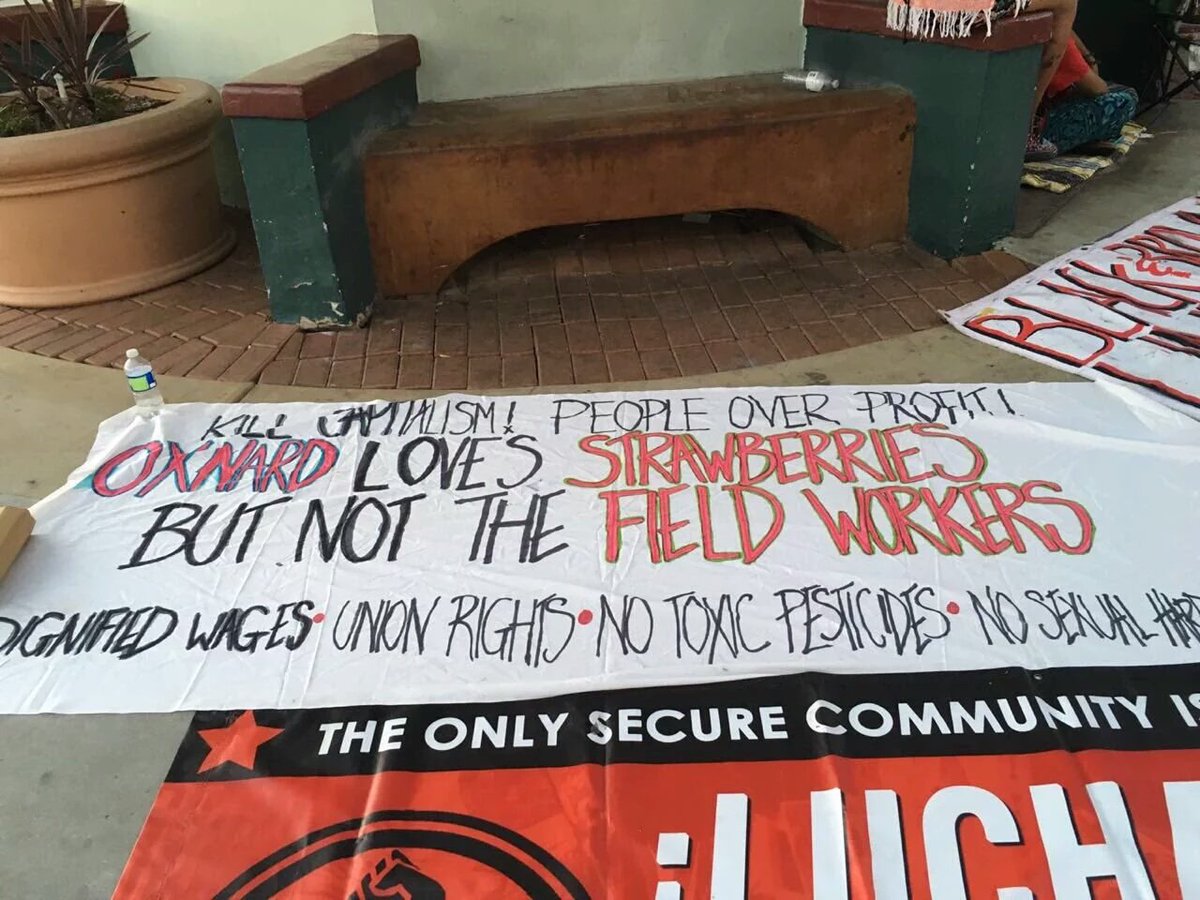 KILL CAPITALISM! PEOPLE OVER PROFIT!
OXNARD LOVES STRAWBERRIES
BUT NOT THE FIELD WORKERS
DIGNIFIED WAGES • UNION RIGHTS • NO TOXIC PESTICIDES • NO SEXUAL
BLACK &
THE ONLY SECURE COMMUNITY
¡LUCHA